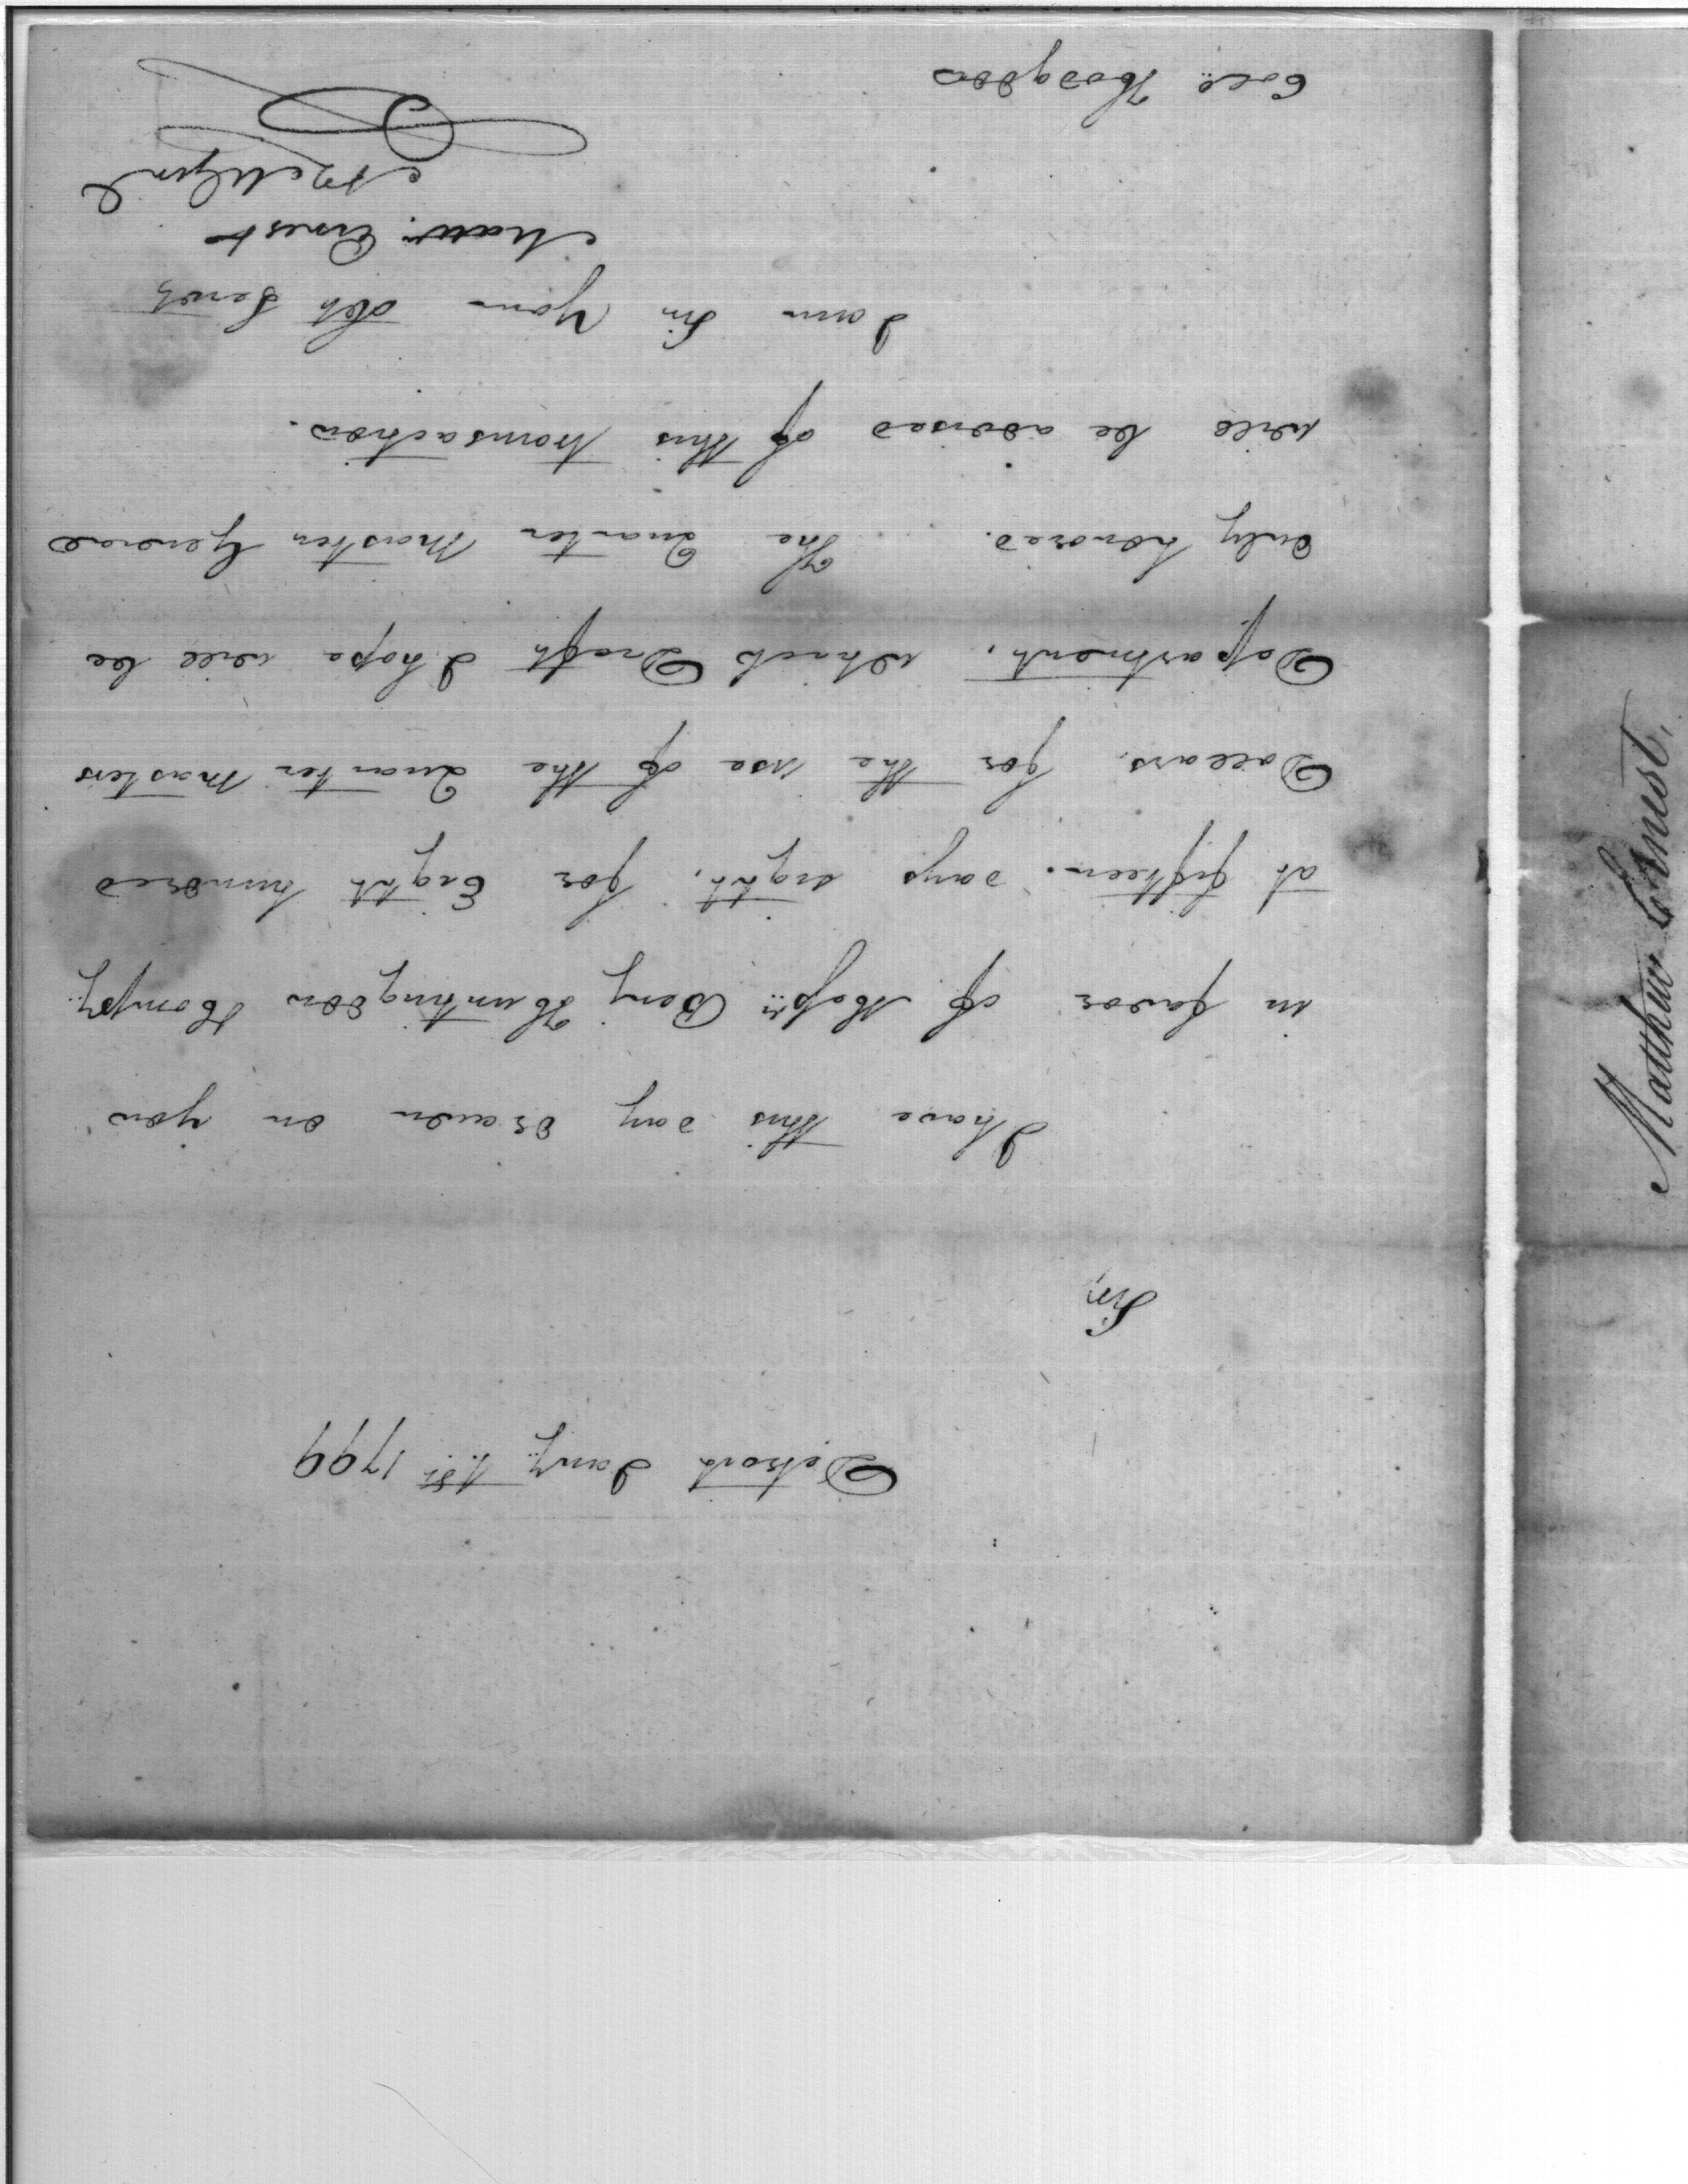 Detroit Jany 1st 1799
Sir,
I have this day drawn on you
in favor of Messrs Berry Huntingdon Compy
at fifteen days sight, for Eight hundred
Dollars. for the use of the Quarter Masters
Department. which Draft I hope will be
duly honored. The Quarter Master General
will be advised of this transaction.
I am Sir Your Obt Servt
Matt. Ernest
Coll. Hodgdon
Matthew Ernest.